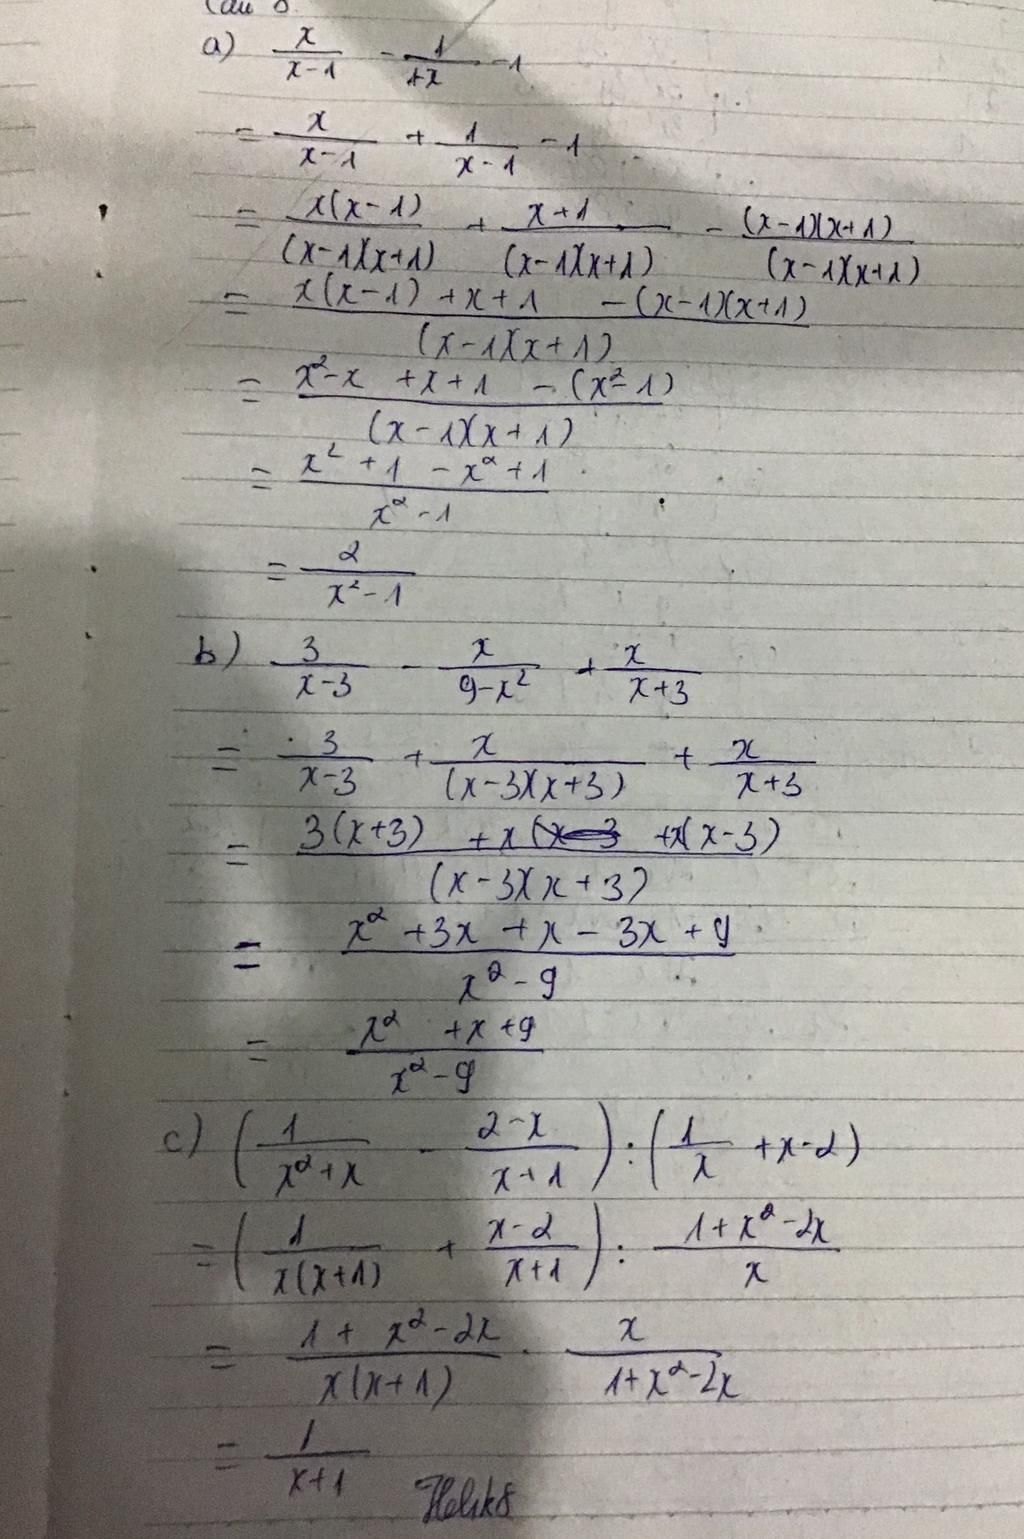 Câu 8.
a) x/(x-1) - 1/(1+x) - 1
= x/(x-1) + 1/(x-1) - 1
= x(x-1)/((x-1)(x+1)) + (x+1)/((x-1)(x+1)) - (x-1)(x+1)/((x-1)(x+1))
= (x(x-1) + x + 1 - (x-1)(x+1))/((x-1)(x+1))
= (x²-x + x + 1 - (x²-1))/((x-1)(x+1))
= (x² + 1 - x² + 1)/(x² - 1)
= 2/(x² - 1)
b) 3/(x-3) - x/(9-x²) + x/(x+3)
= 3/(x-3) + x/((x-3)(x+3)) + x/(x+3)
= (3(x+3) + x + x(x-3))/((x-3)(x+3))
= (x² + 3x + x - 3x + 9)/(x² - 9)
= (x² + x + 9)/(x² - 9)
c) (1/(x²+x) - (2-x)/(x+1)) : (1/x + x - 2)
= (1/(x(x+1)) + (x-2)/(x+1)) : (1+x²-2x)/x
= (1 + x²-2x)/(x(x+1)) · x/(1+x²-2x)
= 1/(x+1)